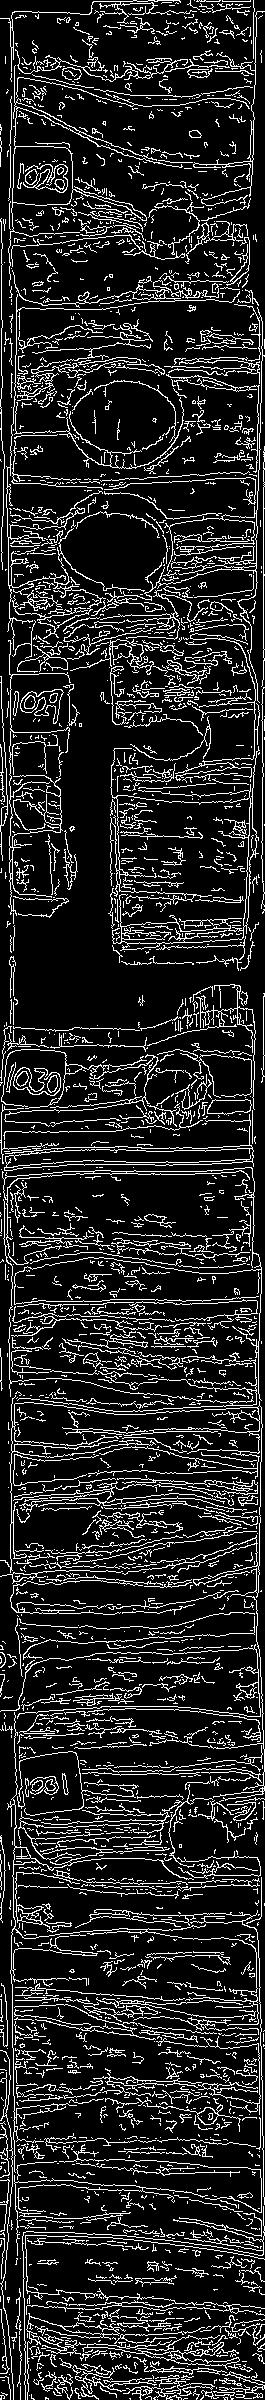 1028
1029
1030
1031